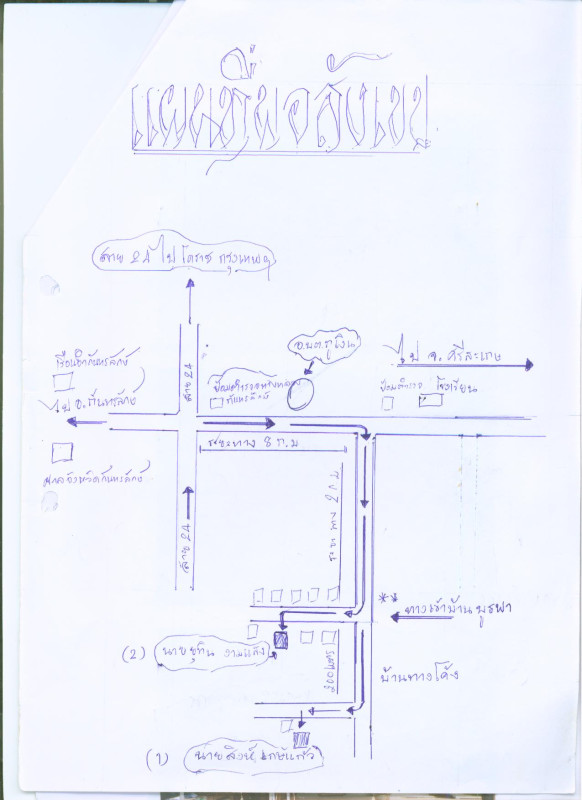 แผนที่พอสังเขป
สาย 24 ไป โคราช กรุงเทพฯ
อ.บ.ต.ภูเงิน
ไป จ. ศรีสะเกษ
ไป อ. กันทรลักษ์
สาย 24
กันทรลักษ์
ป้อมตำรวจ
โรงเรียน
ระยะทาง 8 ก.ม
ศาลจังหวัดกันทรลักษ์
ระยะทาง 2 ก.ม
สาย 24
**
ทางเข้าบ้าน
(2) นายสุทิน งามแสง
200 เมตร
บ้านทางโค้ง
(1) นายสิงห์